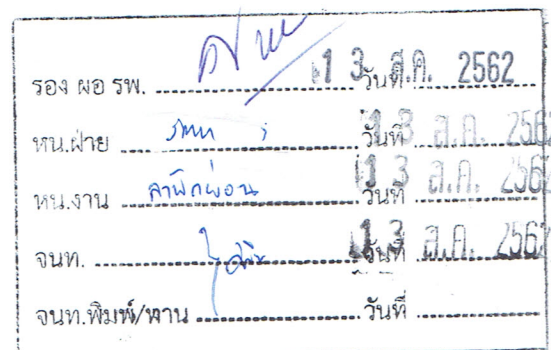 รอง ผอ รพ. วันที่ 13 ส.ค. 2562
หน.ฝ่าย วันที่ 13 ส.ค. 2562
หน.งาน ลาพักผ่อน วันที่ 13 ส.ค. 2562
จนท. วันที่ 13 ส.ค. 2562
จนท.พิมพ์/ทาน วันที่